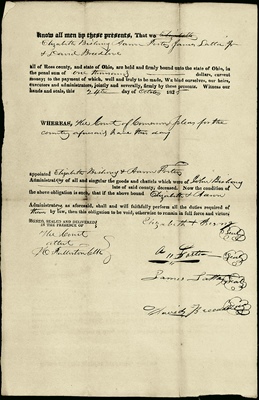 Know all men by these presents, That we
Elizabeth James
& David
all of Ross county, and state of Ohio, are held and firmly bound unto the state of Ohio, in
the penal sum of one thousand dollars, current
money; to the payment of which, well and truly to be made, We bind ourselves, our heirs,
executors and administrators, jointly and severally, firmly by these presents. Witness our
hands and seals, this 24th day of October 1835
WHEREAS, The Court of Common pleas for the
county aforesaid have this day
appointed Elizabeth &
Administrators of all and singular the goods and chattels which were of John
late of said county, deceased. Now the condition of
the above obligation is such, that if the above bound Elizabeth &
Administrators as aforesaid, shall and will faithfully perform all the duties required of
them by law, then this obligation to be void; otherwise to remain in full force and virtue
SIGNED, SEALED AND DELIVERED
IN THE PRESENCE OF
The Court
attest
Elizabeth
Seal
Seal
James
Seal
David
Seal